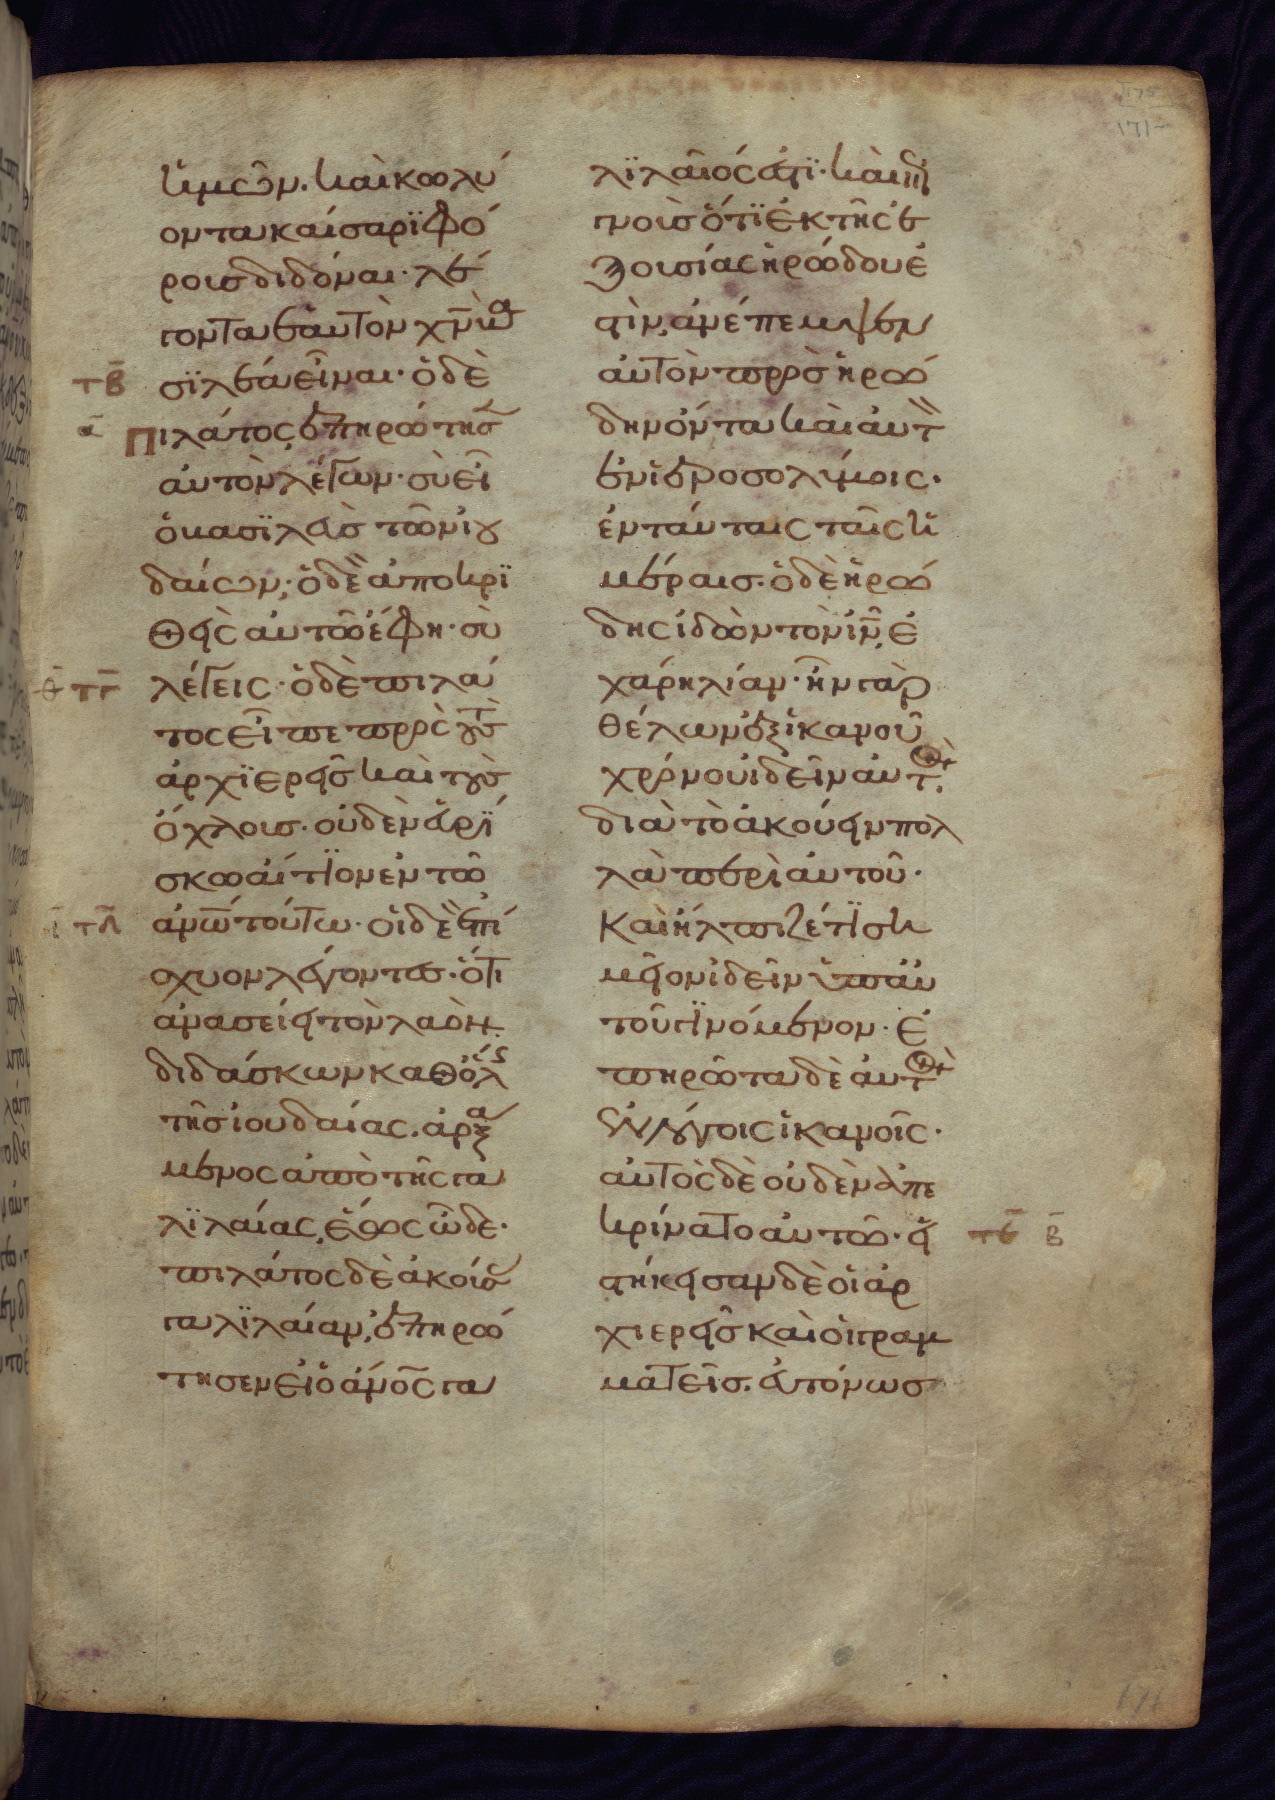 ἡμῶν. καὶ κωλύ
οντα καίσαρϊ φό
ρουσ διδόναι· λέ
γοντα ἑαὐτὸν χ̅ν̅ βα
σϊλέα εἶναι· ὁ δὲ
τ̅β̅
α̅
πιλάτος ἐπηρώτησ
αὐτὸν λέγων· σὺ εἶ
ὁ βασϊλεὺσ τῶν ἰου
δαίων; ὁ δὲ ἀποκρϊ
θεὶς αὐτῶ ἔφη· σὺ
λέγεις· ὁ δὲ πιλά
θ̅ τ̅γ̅
τος εἶπε πρὸς τοὺσ
ἀρχϊερεῖσ καὶ τοὺσ
ὄχλουσ· οὐδὲν εὑρί
σκω αἴτϊον ἐν τῶ
α̅ν̅ω̅ τούτω· οἱ δὲ ἐπί
ι̅ τ̅δ̅
σχυον λέγοντεσ· ὅτι
ἀνασείει τὸν λαὸν
διδάσκων καθ' ὅλης
τῆσ ἰουδαίας. ἀρξά
μενος ἀπὸ τῆς γα
λϊλαίας, ἕως ὧδε·
πιλάτος δὲ ἀκούσ
γαλϊλαίαν, ἐπηρώ
τησεν εἰ ὁ ἄν̅ο̅ς̅ γα
λϊλαῖός ἐστϊ· καὶ ἐπι
γνοὺσ ὅτϊ ἐκ τῆς ἐ
ξουσίας ἡρώδου ἐ
στὶν, ἀνέπεμψεν
αὐτὸν πρὸσ ἡρώ
δην ὄντα καὶ αὐτ
ἐν ἱεροσολύμοις·
ἐν ταύταις ταῖς ἡ
μέραισ· ὁ δὲ ἡρώ
δης ἰδὼν τὸν ι̅ν̅, ἐ
χάρη λίαν· ἦν γὰρ
θέλων ἐξ ἱκανοῦ
χρόνου ἰδεῖν αὐτ
διὰ τὸ ἀκούειν πολ
λὰ περὶ αὐτοῦ·
Καὶ ἤλπιζέ τϊ ση
μεῖον ἰδεῖν ὑπ' αὐ
τοῦ γϊνόμενον· ἐ
πηρῶτα δὲ αὐτ
ἐν λόγοις ἱκανοῖς·
αὐτὸς δὲ οὐδὲν ἀπε
κρίνατο αὐτῶ· εἱ
τ̅ε̅ β̅
στήκεισαν δὲ οἱ ἀρ
χιερεῖσ καὶ οἱ γραμ
ματεῖσ. εὐτόνωσ